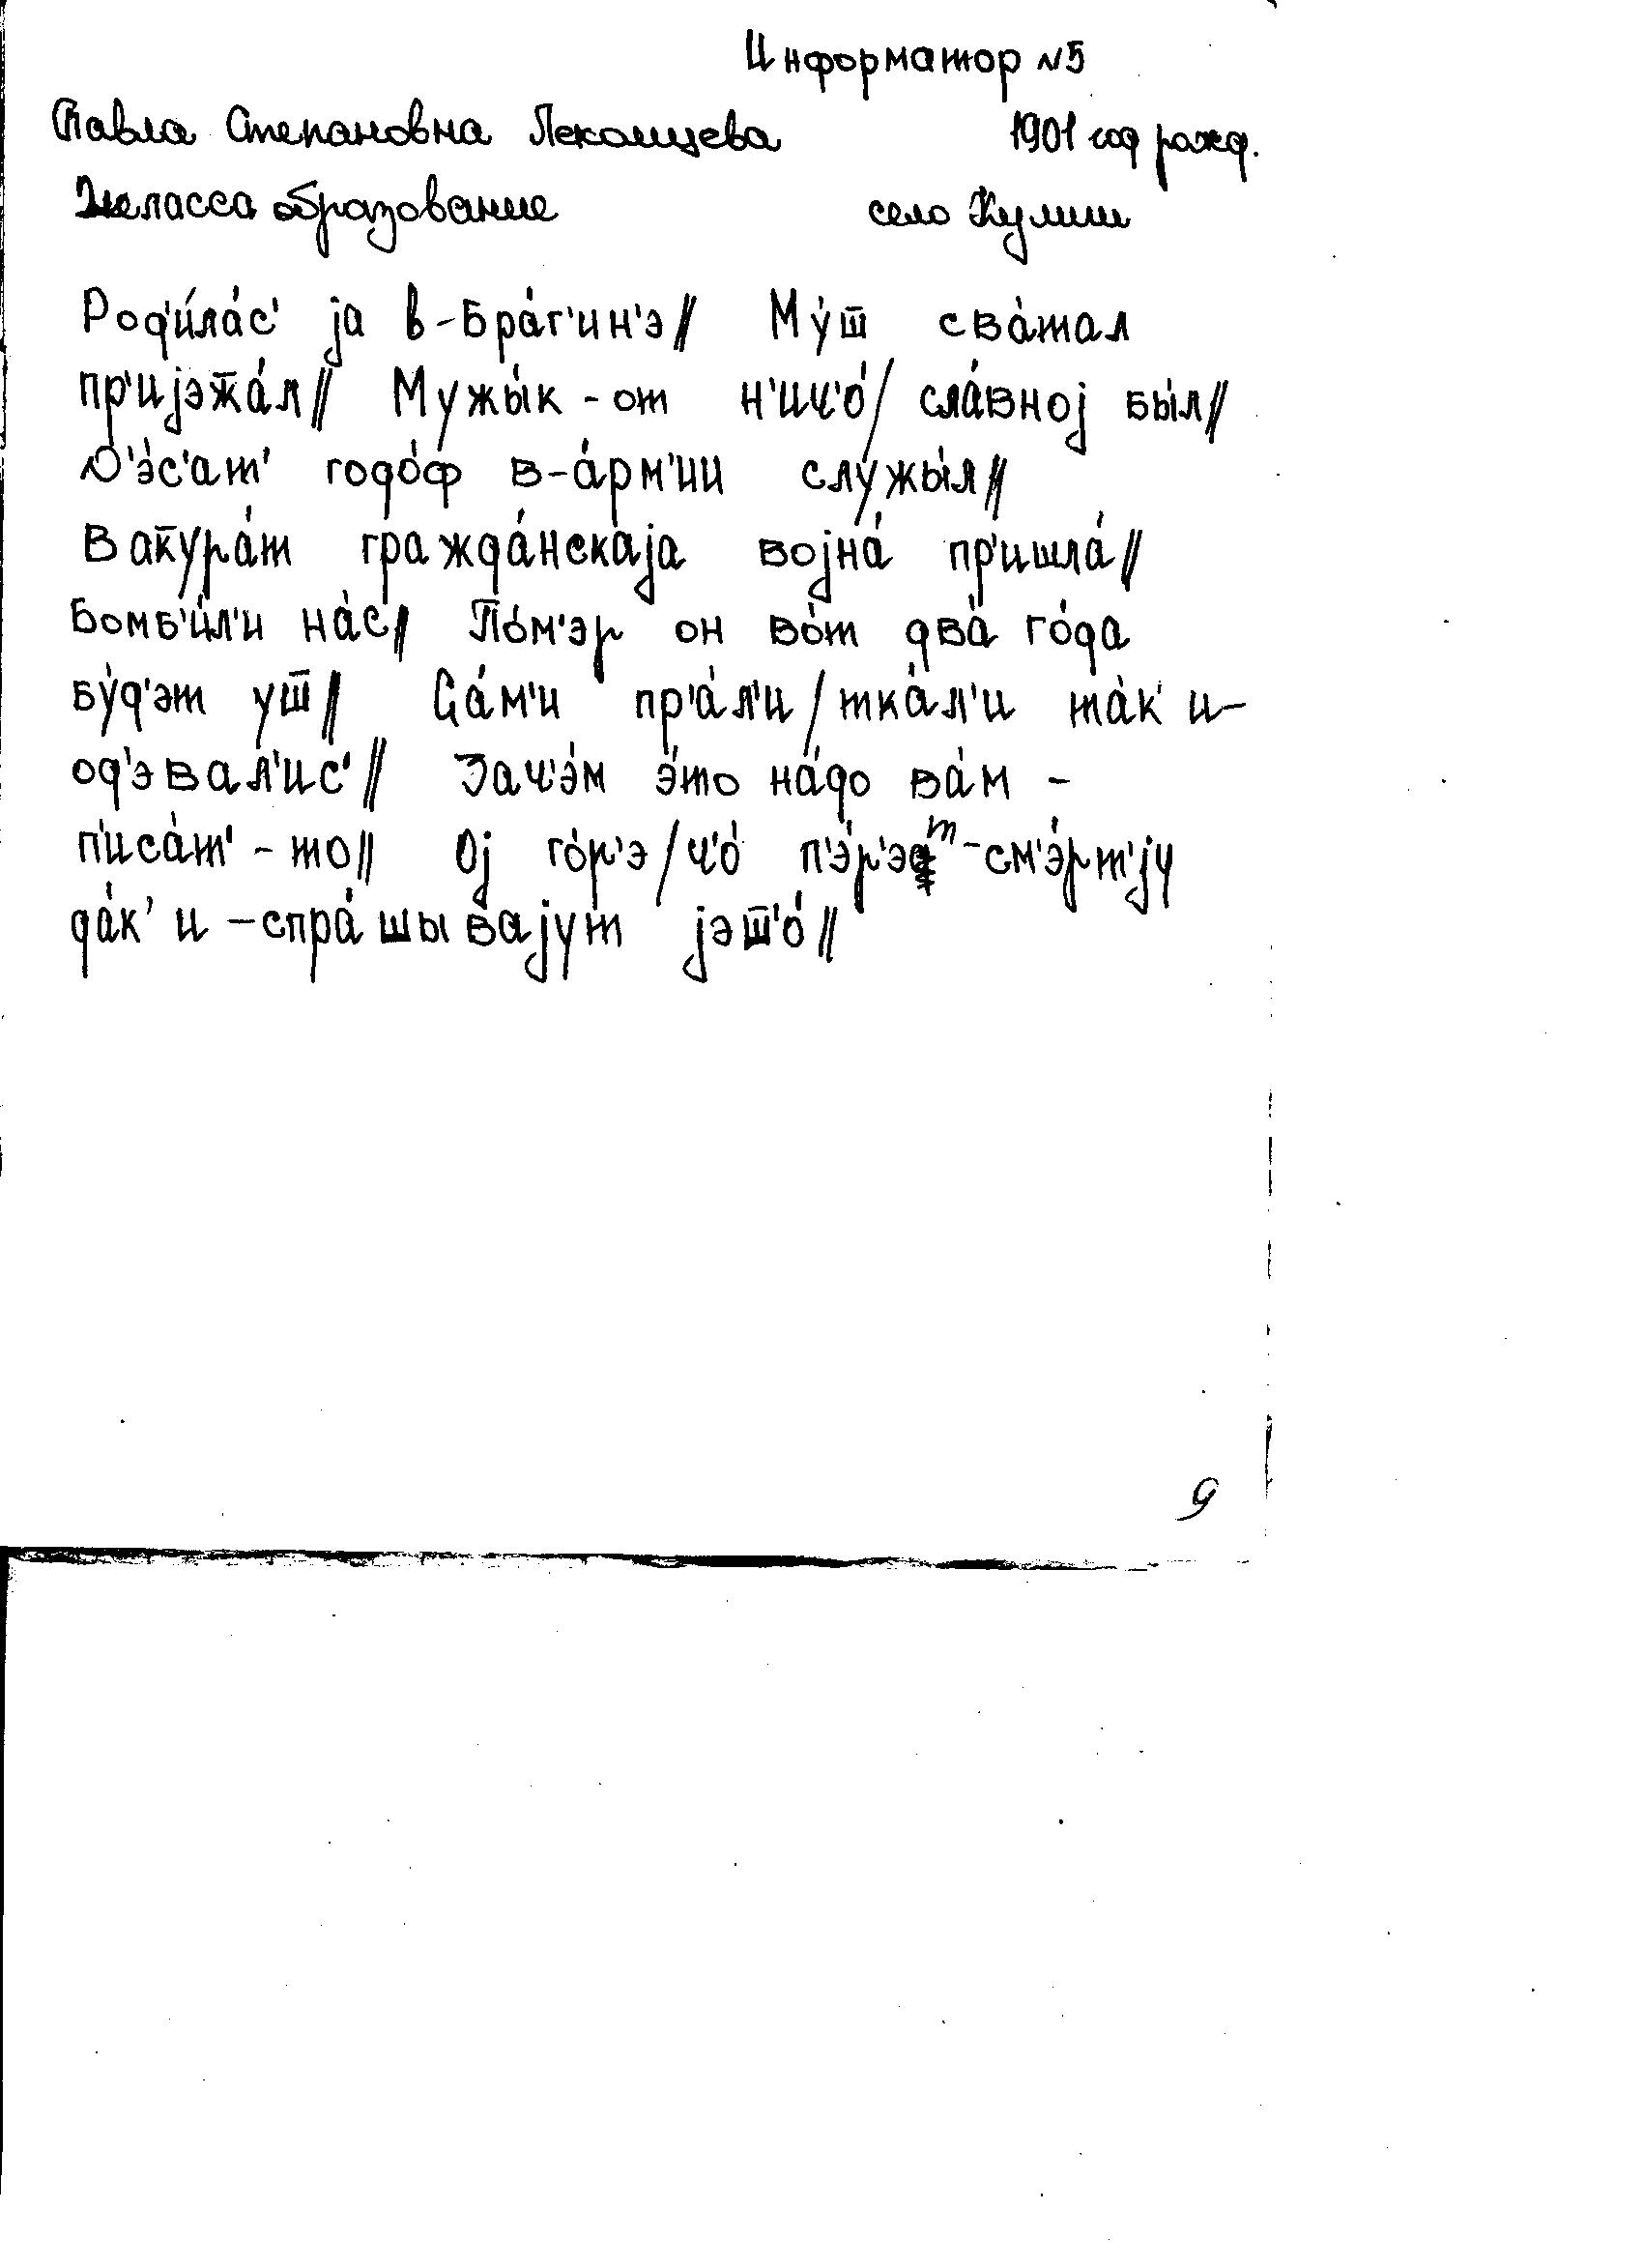 Информатор №5
Павла Степановна Лекомцева 1901 год рожд.
2 класса образование село Кулиги
Род'и́ла́с' jа в-Бра́г'ин'э// Му́ш̅ сва́тал
пр'иjэж̅а́л// Мужы́к-от н'ич'о́/ сла́вноj бы́л//
Д'э́с'ат' годо́ф в-а́рм'ии служы́л//
Вак̅ура́т гражда́нскаjа воjна́ пр'ишла́//
Бомб'и́л'и на́с// По́м'эр он во́т два́ го́да
бу́д'эт уш̅// Са́м'и пр'а́л'и/тка́л'и та́к и-
од'эвал'ис'// Зач'э́м э́то на́до ва́м -
п'иса́т'-то// Оj го́р'э/ч'о́ п'э́р'эт-см'э́рт'jу
да́к и-спра́шываjут jэш̅'о́//
9